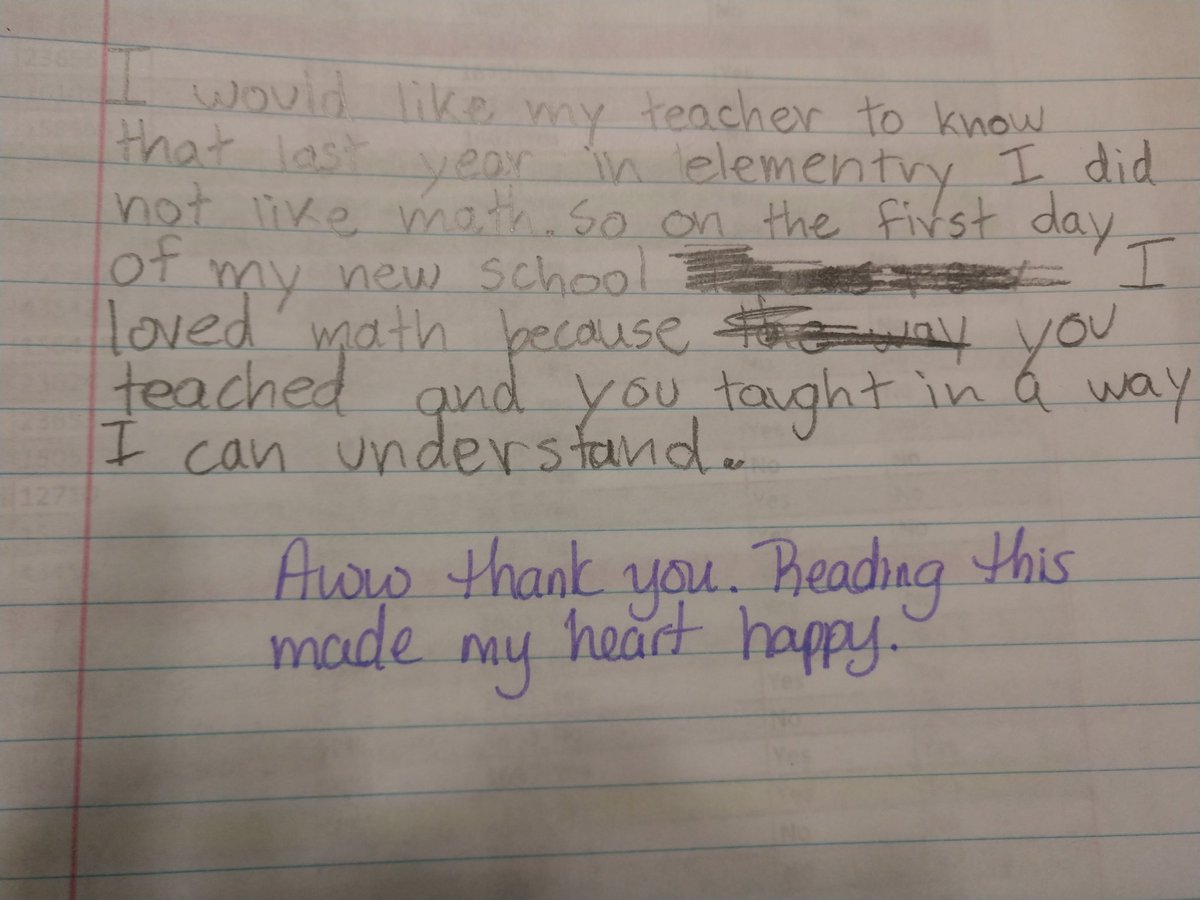 I would like my teacher to know
that last year in elementry I did
not like math. So on the first day
of my new school I
loved math because the way you
teached and you taught in a way
I can understand.
Aww thank you. Reading this
made my heart happy.